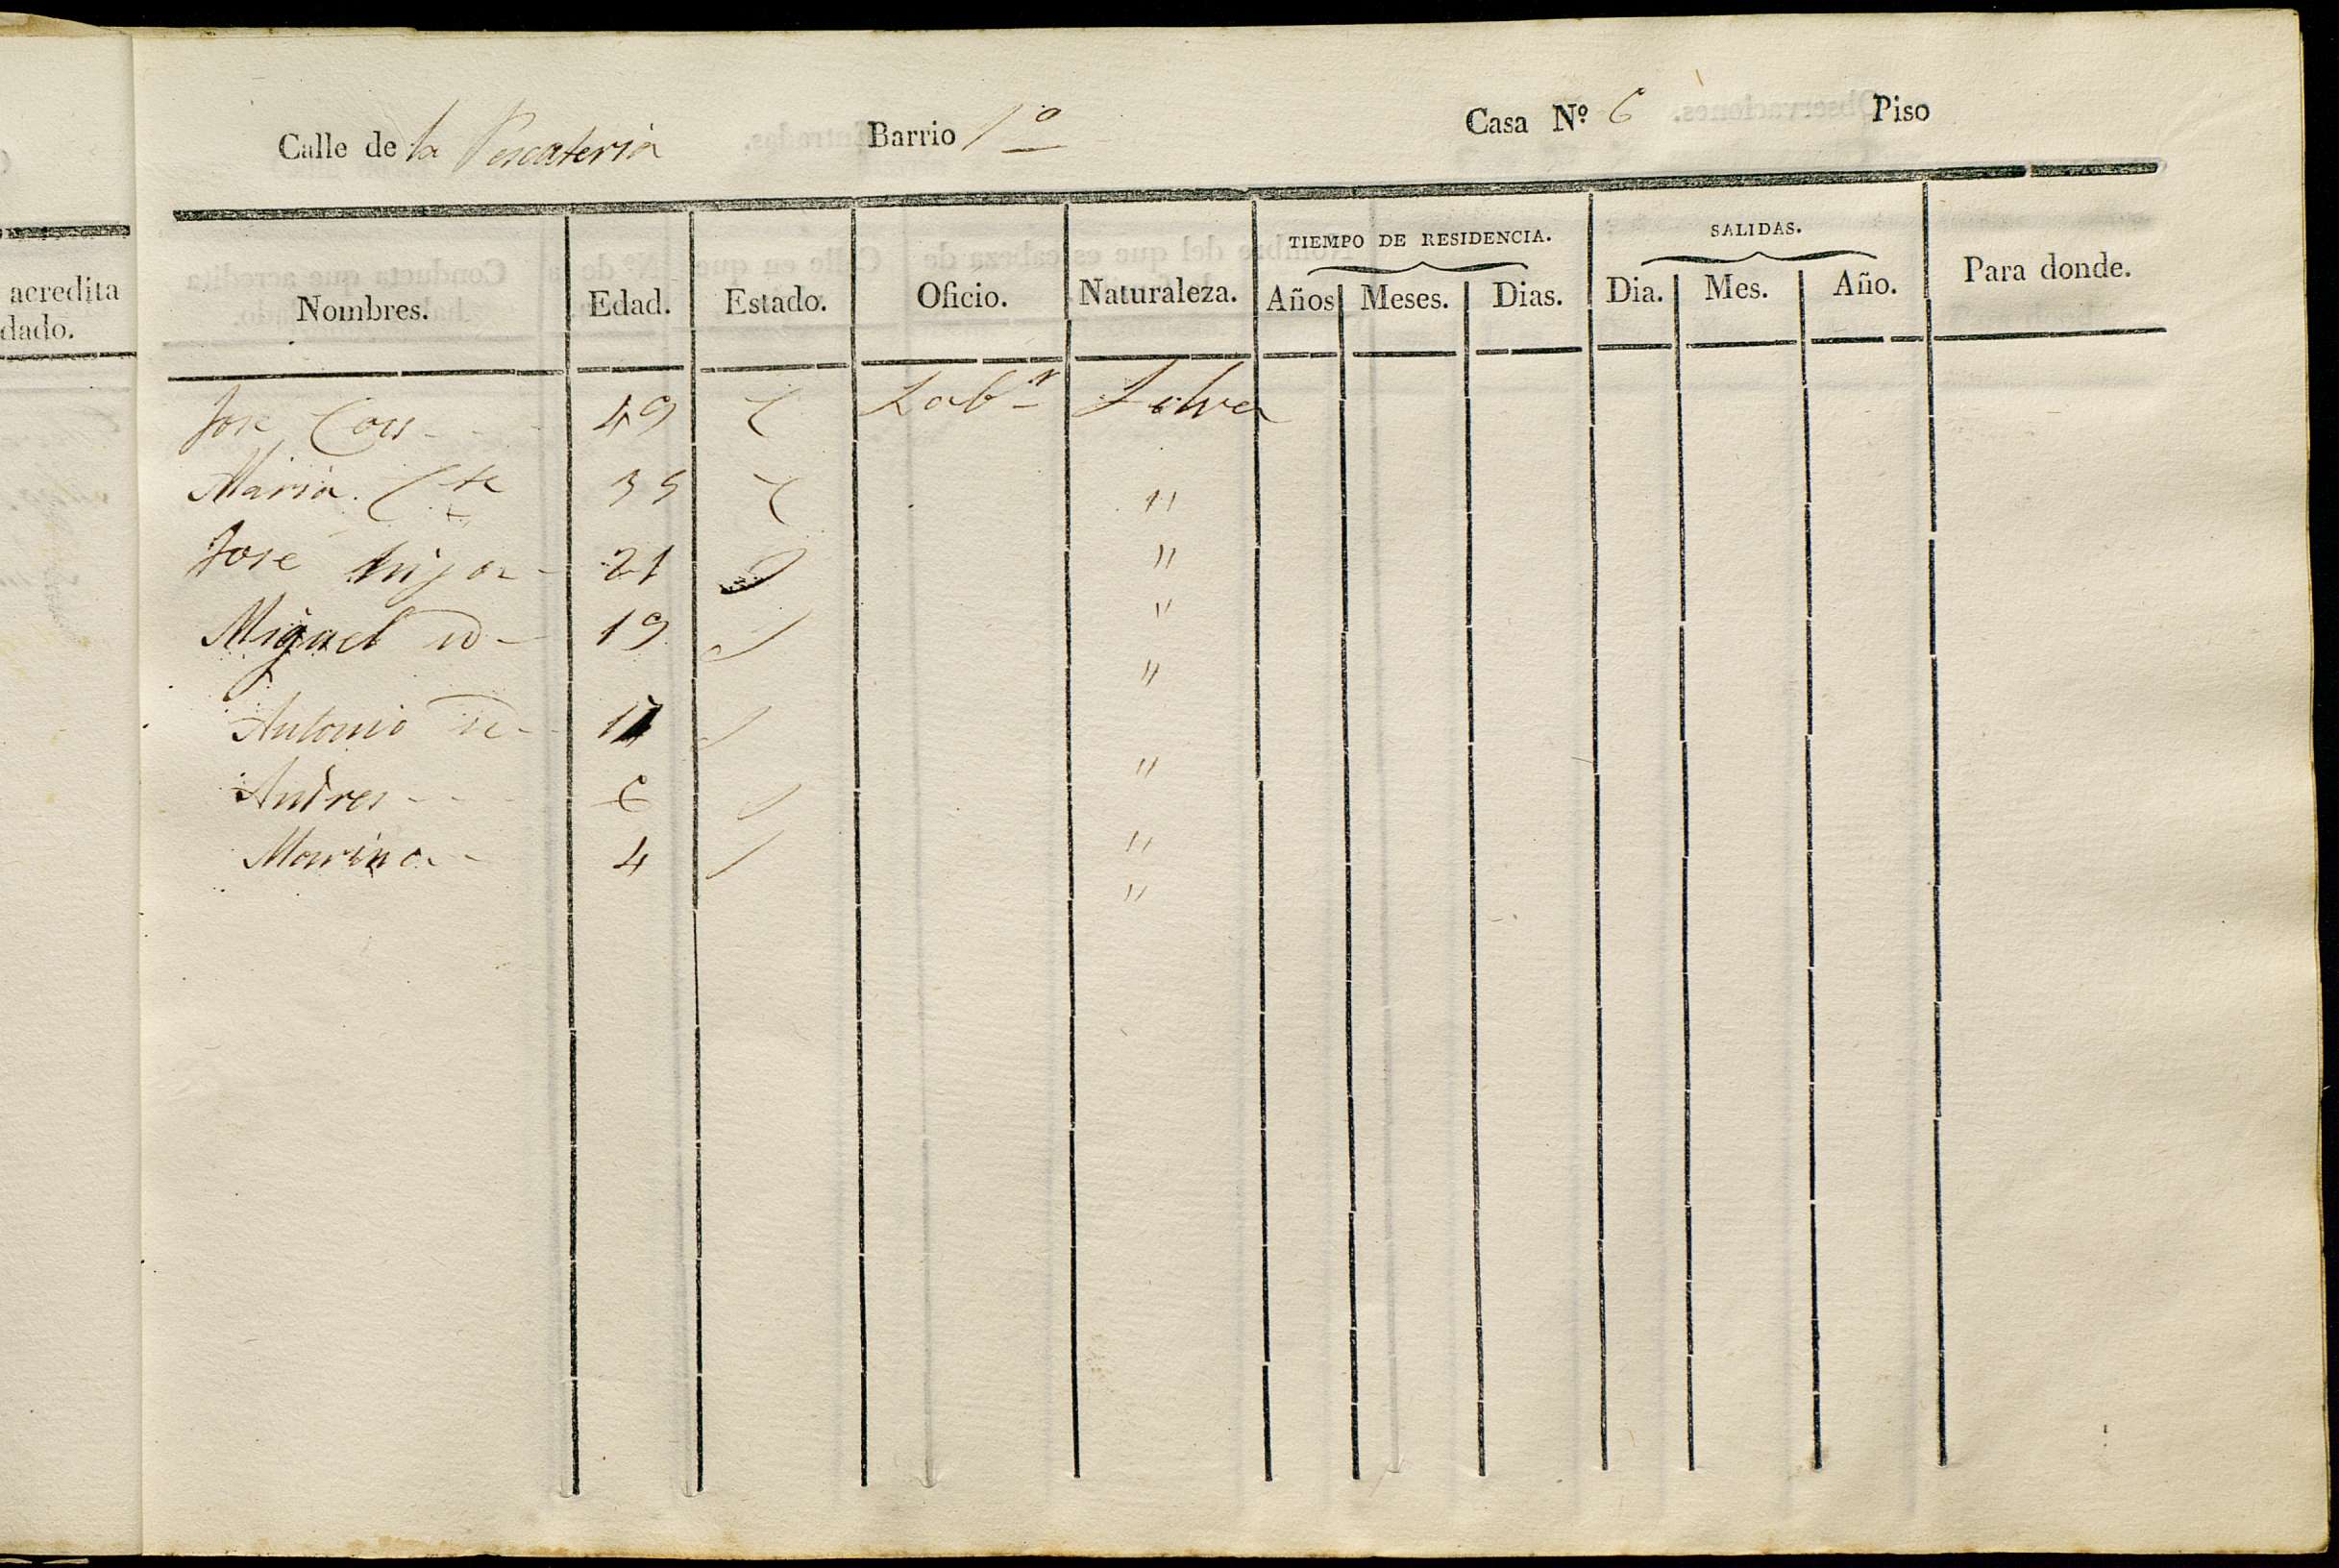 acredita
dado.
Calle de la Pescateria Barrio 1º Casa Nº 6 Piso
TIEMPO DE RESIDENCIA. SALIDAS.
Nombres. Edad. Estado. Oficio. Naturaleza. Años Meses. Dias. Dia. Mes. Año. Para donde.
Jose 49 C Labr Selva
Maria 35 C "
Jose hijo 21 "
Miguel id 19 S "
"
Antonio id S
Andres 6 S "
Marina 4 S "
"